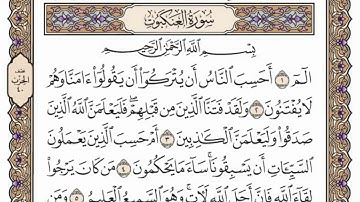 سورة العنكبوت
بِسْمِ اللَّهِ الرَّحْمَٰنِ الرَّحِيمِ
الٓمٓ ١ أَحَسِبَ النَّاسُ أَن يُتْرَكُوٓا۟ أَن يَقُولُوٓا۟ ءَامَنَّا وَهُمْ
لَا يُفْتَنُونَ ٢ وَلَقَدْ فَتَنَّا الَّذِينَ مِن قَبْلِهِمْ ۖ فَلَيَعْلَمَنَّ اللَّهُ الَّذِينَ
صَدَقُوا۟ وَلَيَعْلَمَنَّ الْكَٰذِبِينَ ٣ أَمْ حَسِبَ الَّذِينَ يَعْمَلُونَ
السَّيِّـَٔاتِ أَن يَسْبِقُونَا ۚ سَآءَ مَا يَحْكُمُونَ ٤ مَن كَانَ يَرْجُوا۟
لِقَآءَ اللَّهِ فَإِنَّ أَجَلَ اللَّهِ لَـَٔاتٍ ۚ وَهُوَ السَّمِيعُ الْعَلِيمُ ٥ وَمَن
الحزب
٤٠